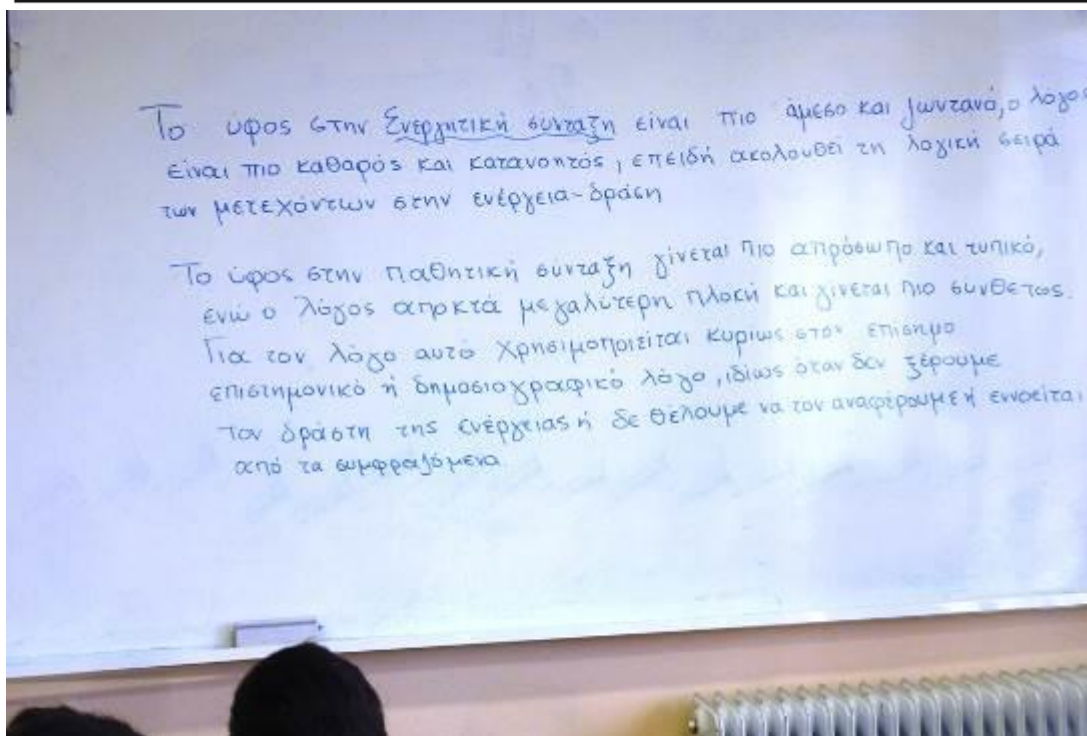 Το ύφος στην Ενεργητική σύνταξη είναι πιο άμεσο και ζωντανό, ο λόγος
είναι πιο καθαρός και κατανοητός, επειδή ακολουθεί τη λογική σειρά
των μετεχόντων στην ενέργεια-δράση
Το ύφος στην παθητική σύνταξη γίνεται πιο απρόσωπο και τυπικό,
ενώ ο λόγος αποκτά μεγαλύτερη πλοκή και γίνεται πιο σύνθετος.
Για τον λόγο αυτό χρησιμοποιείται κυρίως στον επίσημο
επιστημονικό ή δημοσιογραφικό λόγο, ιδίως όταν δεν ξέρουμε
τον δράστη της ενέργειας ή δε θέλουμε να τον αναφέρουμε ή εννοείται
από τα συμφραζόμενα